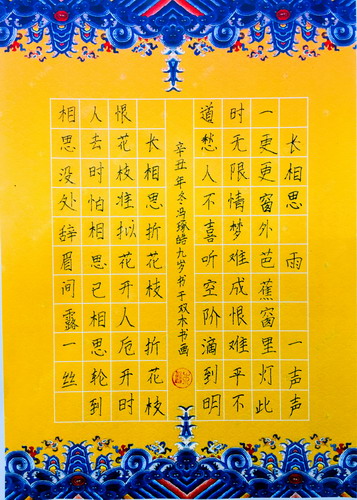 长相思 雨 一声声
一更更窗外芭蕉窗里灯此
时无限情梦难成恨难平不
道愁人不喜听空阶滴到明
辛丑年冬冯琢皓九岁书于双木书画
长相思折花枝 折花枝
恨花枝准拟花开人卮开时
人去时怕相思已相思轮到
相思没处辞眉间露一丝